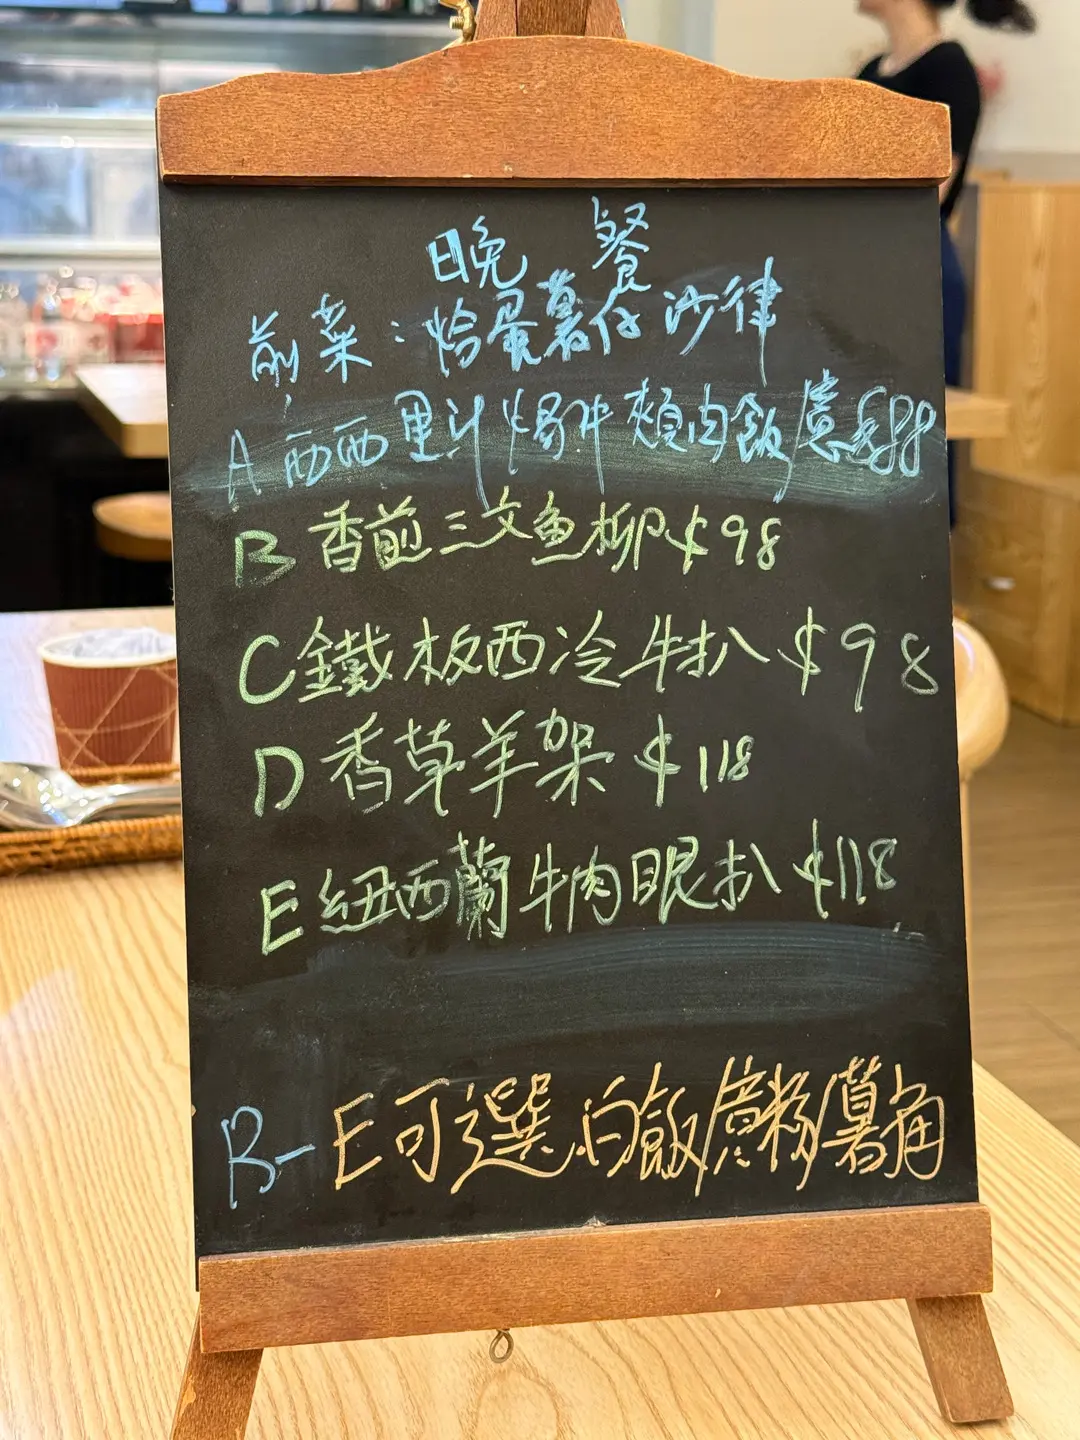 晚餐
前菜:恰蛋薯仔沙律
A 西西里汁焗牛頰肉飯/意$88
B 香煎三文魚柳$98
C 鐵板西冷牛扒 $98
D 香草羊架 $118
E 紐西蘭牛肉眼扒 $118
B-E可選:白飯/意粉/薯角